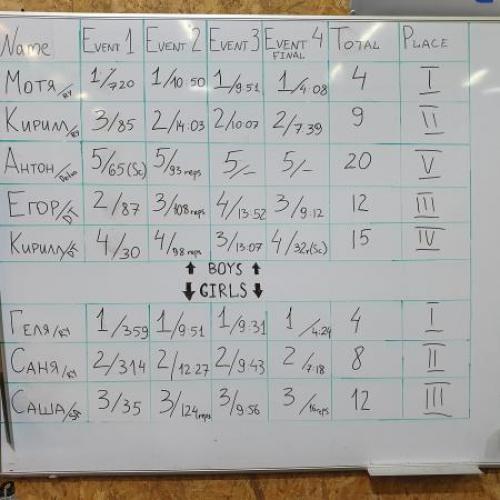 Name EVENT 1 EVENT 2 EVENT 3 EVENT 4 FINAL TOTAL PLACE
МОТЯ 1/720 1/10:50 1/9:51 1/4:08 4 I
КИРИЛЛ 3/85 2/14:03 2/10:07 2/7:39 9 II
АНТОН 5/65(Sc) 5/93 reps 5/- 5/- 20 V
ЕГОР/DT 2/87 3/108 reps 4/13:52 3/9:12 12 III
КИРИЛЛ 4/30 4/98 reps 3/13:07 4/32r(Sc) 15 IV
↑ BOYS ↑
↓ GIRLS ↓
ГЕЛЯ 1/359 1/9:51 1/9:31 1/4:29 4 I
САНЯ 2/314 2/12:27 2/9:43 2/7:18 8 II
САША 3/35 3/124 reps 3/9:56 3/16 reps 12 III